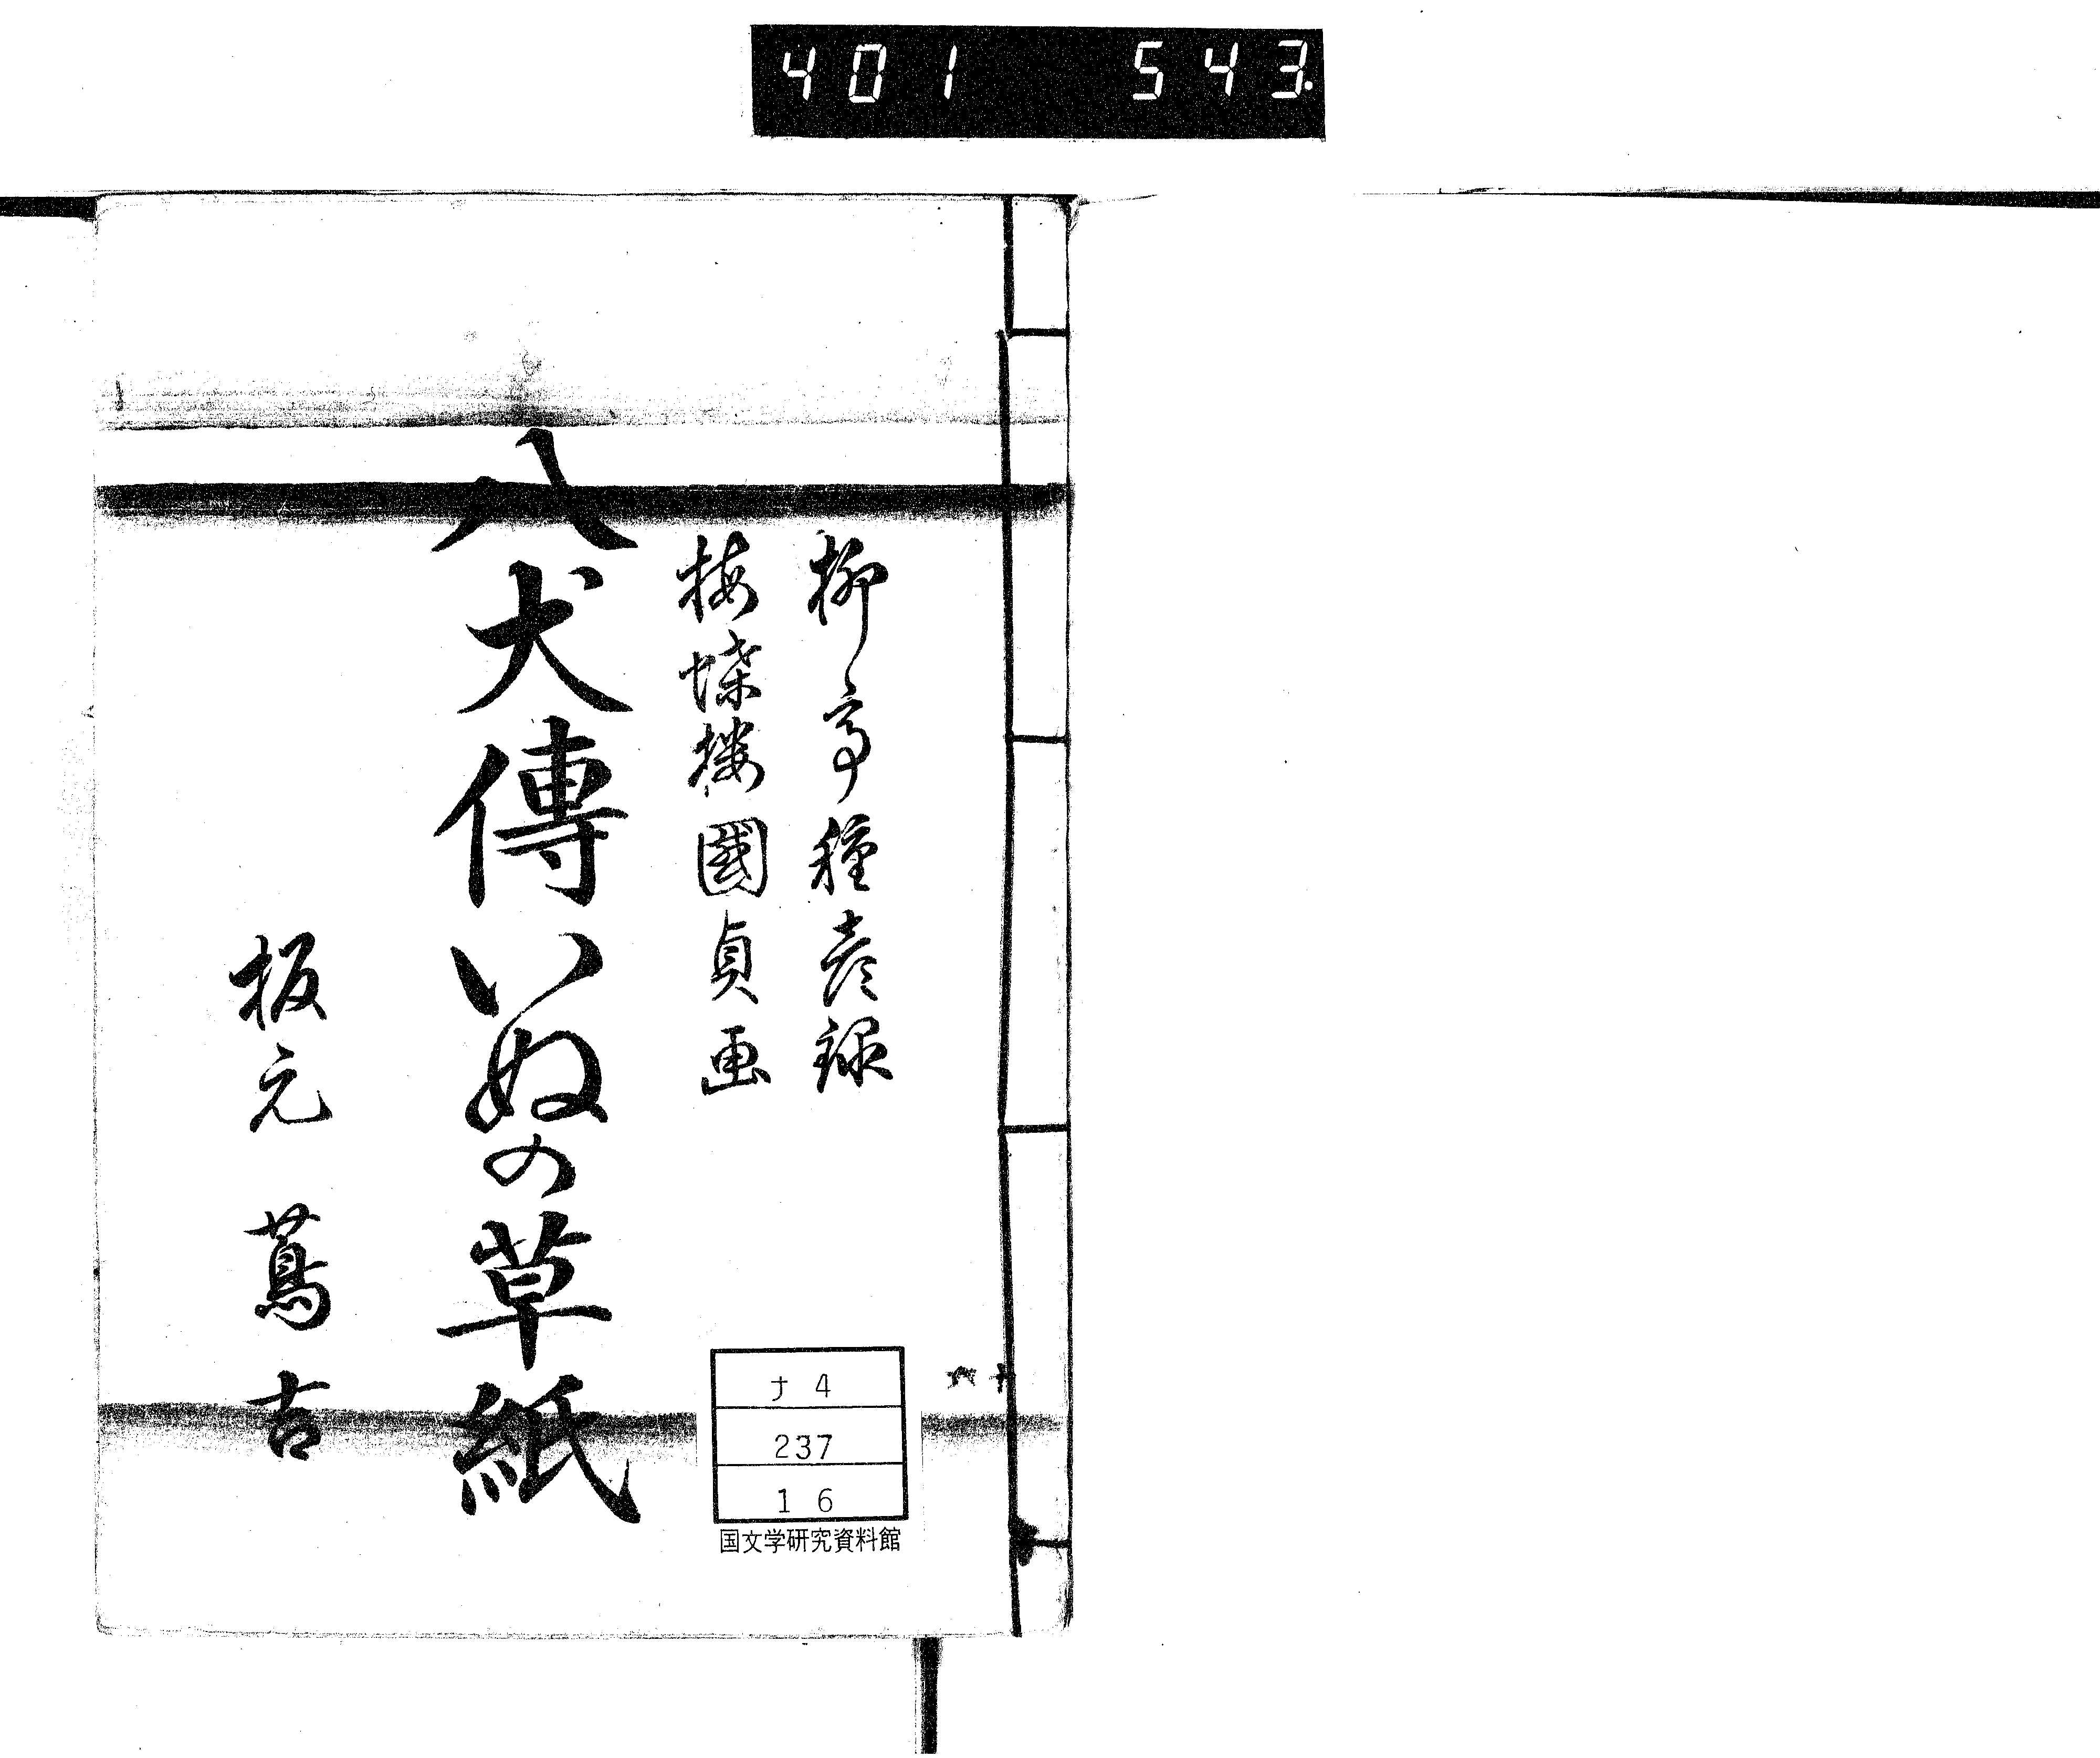 401 543.
柳亭種彦録
梅蝶楼國貞画
八犬傳いぬの草紙
板元 蔦吉
ナ 4
237
1 6
国文学研究資料館